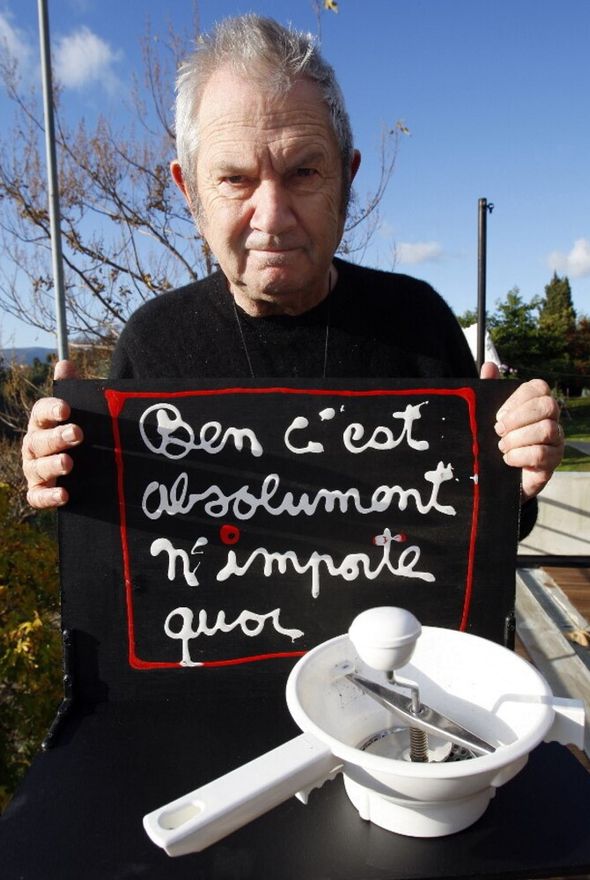 Ben c'est
absolument
n'importe
quoi